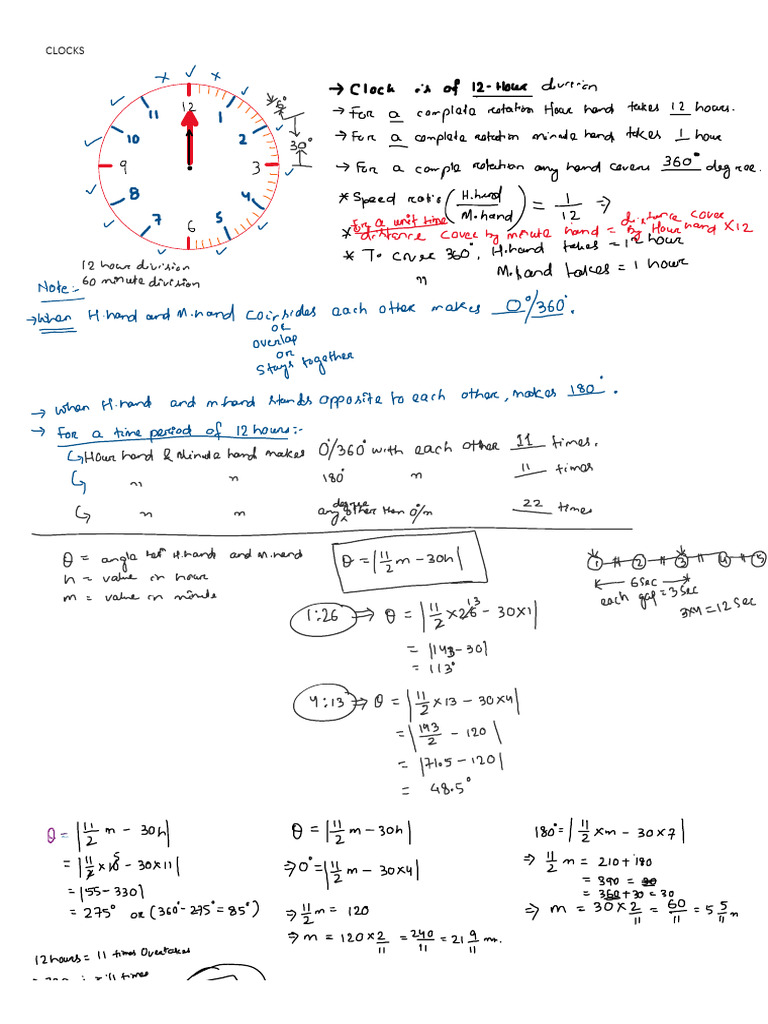 CLOCKS
12
1
2
3
4
5
6
7
8
9
10
11
30°
12 hour division
60 minute division
→ Clock is of 12-Hour division
→ For a complete rotation Hour hand takes 12 hours.
→ For a complete rotation minute hand takes 1 hour
→ For a comple rotation any hand covers 360° degree.
* Speed ratio (H.hand / M.hand) = 1/12 ⇒
* For a unit time distance cover by minute hand = distance cover by Hour hand X12
* To cover 360°, H.hand takes = 12 hour
" M.hand takes = 1 hour
Note:-
→ When H.hand and M.hand coinsides each other makes 0°/360°.
or
overlap
or
stays together
→ When H.hand and m.hand stands opposite to each other, makes 180°.
→ For a time period of 12 hours:-
↳ Hour hand & Minute hand makes 0°/360° with each other 11 times.
↳ " " 180° " 11 times
↳ " " any other degree than 0°/" 22 times
θ = angle bet H.hand and M.hand
h = value in hour
m = value in minute
θ = |11/2 m - 30h|
1 2 3 4 5
6 sec
each gap = 3 sec
3x4 = 12 sec
1:26 ⇒ θ = |11/2 x 26 13 - 30x1|
= |143-30|
= 113°
4:13 ⇒ θ = |11/2 x 13 - 30x4|
= |143/2 - 120|
= |71.5 - 120|
= 48.5°
θ = |11/2 m - 30h|
= |11/2 x 10 5 - 30x11|
= |55 - 330|
= 275° or (360° - 275° = 85°)
12 hours = 11 times Overtakes
θ = |11/2 m - 30h|
⇒ 0° = |11/2 m - 30x4|
⇒ 11/2 m = 120
⇒ m = 120 x 2/11 = 240/11 = 21 9/11 mn.
180° = |11/2 x m - 30x7|
⇒ 11/2 m = 210 + 180
= 390 = 30
= 360 + 30 = 30
⇒ m = 30 x 2/11 = 60/11 = 5 5/11 m